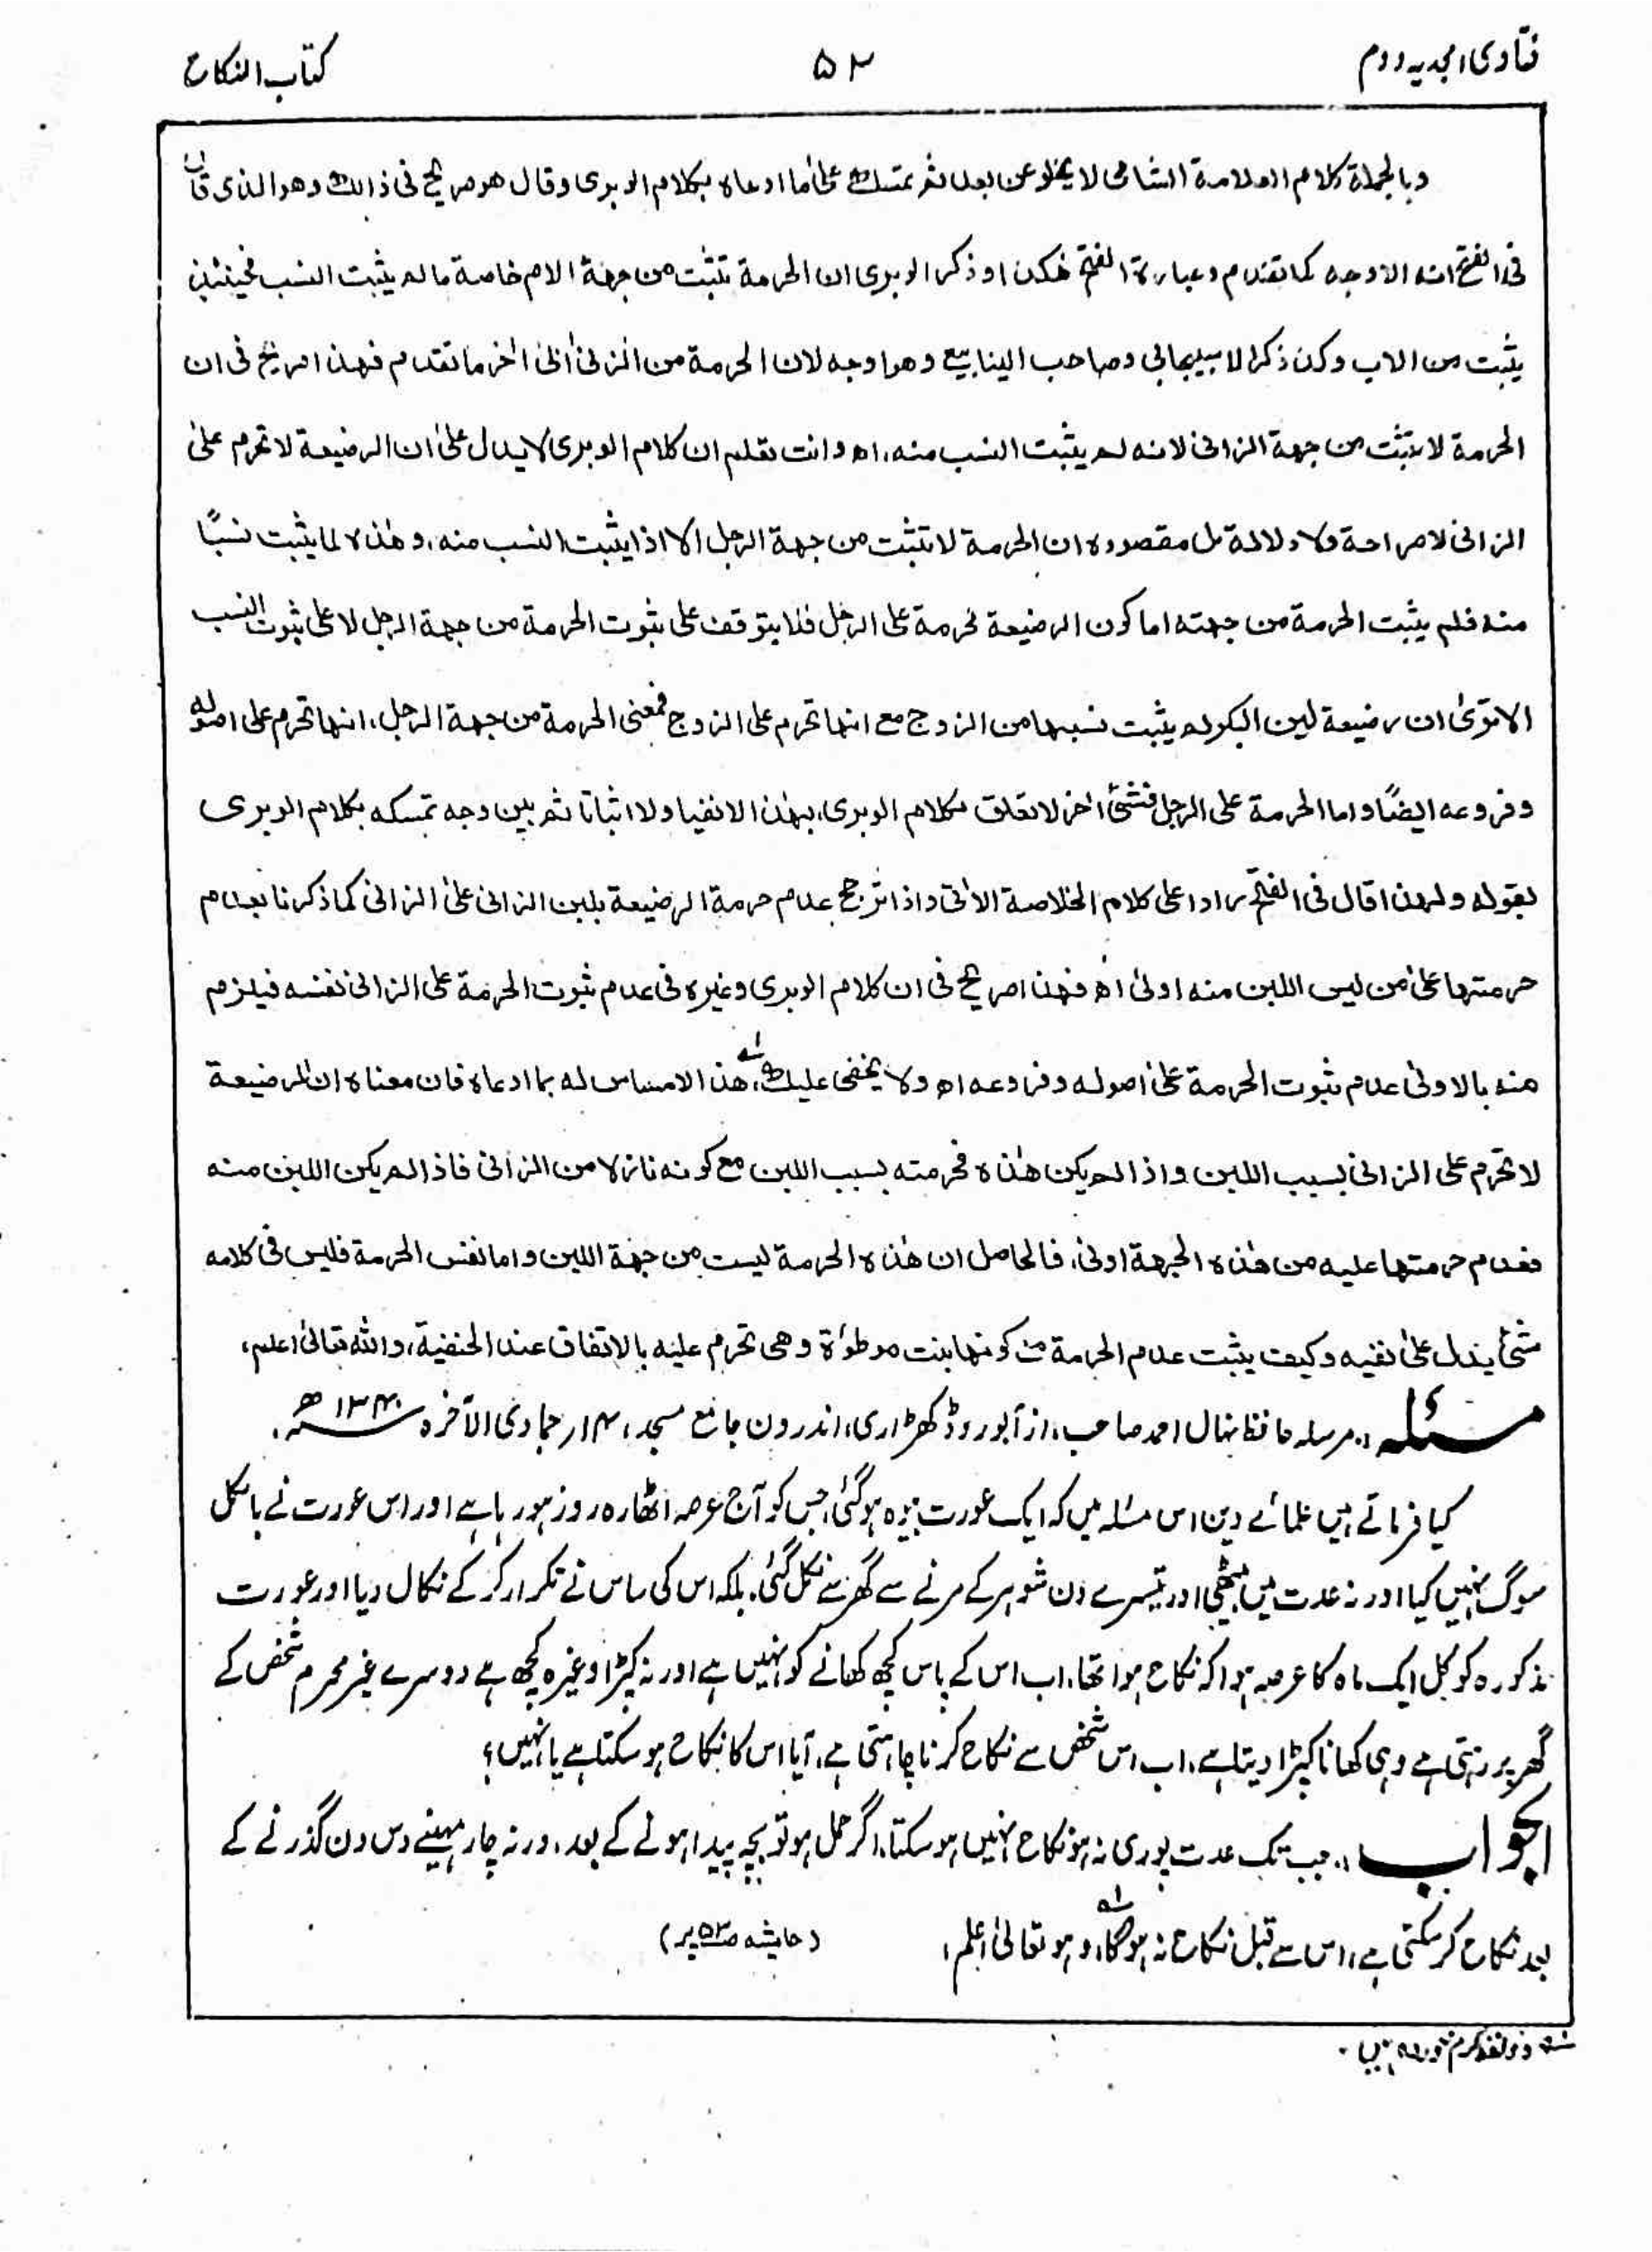 فتاوی امجدیہ دوم
۵۲
کتاب النکاح
وبالجملۃ کلام العلامۃ الشامی لا یخلو عن بعد ثم تمسک علیٰ ما ادعاہ بکلام الوبری وقال ھو صریح فی ذالک وھو الذی قال
فی الفتح انہ الاوجہ کما تقدم وعبارۃ الفتح ھکذا وذکر الوبری ان الحرمۃ تثبت من جھۃ الام خاصۃ مالم یثبت النسب فحینئذٍ
یثبت من الاب وکذ ذکر الاسبیجابی وصاحب الینابیع وھو اوجہ لان الحرمۃ من الزنیٰ الیٰ اٰخر ما تقدم فھذا صریح فی ان
الحرمۃ لا تثبت من جھۃ الزانی لانہ لم یثبت النسب منہ، اھ وانت تعلم ان کلام الوبری لا یدل علیٰ ان الرضیعۃ لا تحرم علیٰ
الزانی لا صراحۃ ولا دلالۃ بل مقصودہ ان الحرمۃ لا تثبت من جھۃ الرجل الا اذا یثبت النسب منہ، وھٰذہ لما یثبت نسبًا
منہ فلم یثبت الحرمۃ من جھتہ اما کون الرضیعۃ محرمۃ علی الرجل فلا یتوقف علی ثبوت الحرمۃ من جھۃ الرجل لا علی ثبوت النسب
الا تویٰ ان رضیعۃ لبن البکر لم یثبت نسبھا من الزوج مع انھا تحرم علی الزوج فمعنی الحرمۃ من جھۃ الرجل، انھا تحرم علی اصولہ
وفروعہ ایضًا واما الحرمۃ علی الرجل فشئ اٰخر لا تعلق لکلام الوبری، بھٰذا لا نفیا ولا اثباتا ثم بین وجہ تمسکہ بکلام الوبری
بقولہ ولھذا قال فی الفتح رادا علی کلام الخلاصۃ الاٰتی واذا ترجح عدم حرمۃ الرضیعۃ بلبن الزانی علیٰ الزانی کما ذکرنا بعدم
حرمتھا علیٰ من لیس اللبن منہ اولیٰ اھ فھذا صریح فی ان کلام الوبری وغیرہ فی عدم ثبوت الحرمۃ علی الزانی نفسہ فیلزم
منہ بالاولیٰ عدم ثبوت الحرمۃ علیٰ اصولہ وفروعہ اھ ولا یخفی علیک لہ، ھذا لا مساس لہ بما ادعاہ فان معناہ ان الرضیعۃ
لا تحرم علی الزانی بسبب اللبن واذا لم یکن ھٰذہ فحرمتہ بسبب اللبن مع کونہ نازلا من الزانی فاذا لم یکن اللبن منہ
فعدم حرمتھا علیہ من ھٰذہ الجھۃ اولیٰ، فالحاصل ان ھٰذہ الحرمۃ لیست من جھۃ اللبن واما نفس الحرمۃ فلیس فی کلامہ
شئ یدل علیٰ نفیہ وکیف یثبت عدم الحرمۃ مع کونھا بنت موطوأۃ وھی تحرم علیہ بالاتفاق عند الحنفیۃ، واللہ تعالیٰ اعلم،
مسئلہ:۔ مرسلہ حافظ نہال احمد صاحب، از آبو روڈ کھڑاری، اندرون جامع مسجد، ۱۴؍ جمادی الآخرہ ۱۳۴۰ھ،
کیا فرماتے ہیں علمائے دین اس مسئلہ میں کہ ایک عورت بیوہ ہوگئی، جس کو آج عرصہ اٹھارہ روز ہو رہا ہے اور اس عورت نے بالکل
سوگ نہیں کیا اور نہ عدت میں بیٹھی اور تیسرے دن شوہر کے مرنے سے گھر سے نکل گئی، بلکہ اس کی ساس نے تکرار کر کے نکال دیا اور عورت
مذکورہ کو کل ایک ماہ کا عرصہ ہوا کہ نکاح ہوا تھا، اب اس کے پاس کچھ کھانے کو نہیں ہے اور نہ کپڑا وغیرہ کچھ ہے دوسرے غیر محرم شخص کے
گھر پر رہتی ہے وہی کھانا کپڑا دیتا ہے، اب اس شخص سے نکاح کرنا چاہتی ہے، آیا اس کا نکاح ہو سکتا ہے یا نہیں؟
الجواب:۔ جب تک عدت پوری نہ ہو نکاح نہیں ہو سکتا، اگر حمل ہو تو بچہ پیدا ہونے کے بعد، ورنہ چار مہینے دس دن گذرنے کے
بعد نکاح کر سکتی ہے، اس سے قبل نکاح نہ ہوگا، لہ وہو تعالیٰ اعلم، (حاشیہ ص۵۳ پر)